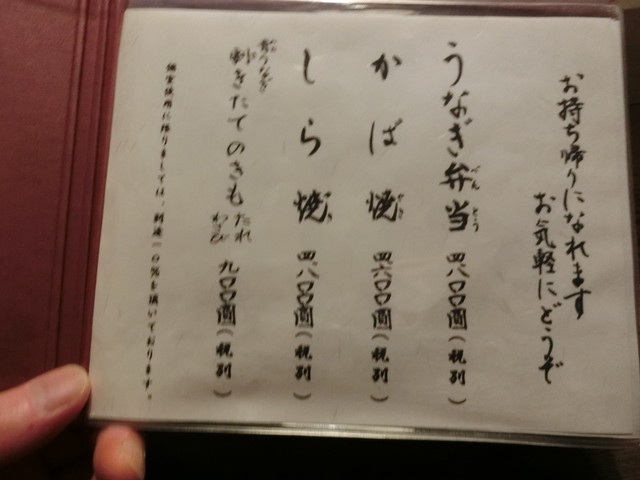 お持ち帰りになれます
お気軽にどうぞ
うなぎ弁当 四八〇〇圓(税別)
べんとう
かば焼 四六〇〇圓(税別)
やき
しら焼 四八〇〇圓(税別)
やき
剥きたてのきも 九〇〇圓(税別)
たれ
わさび
個室使用に限りましては、別途一〇%を頂いております。